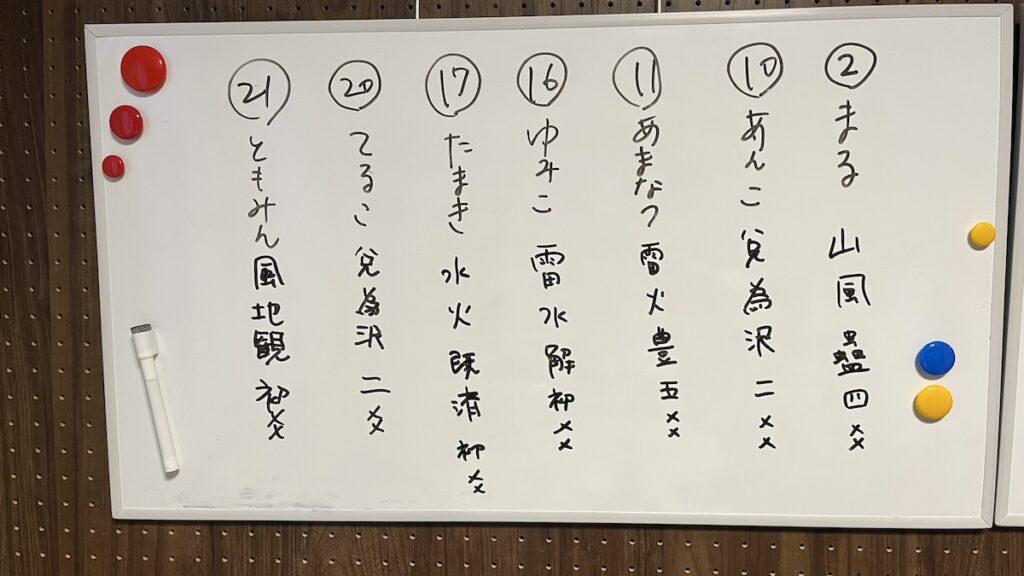 ② まる 山風蠱 四 ××
⑩ あんこ 兌為沢 二 ××
⑪ あまなつ 雷火豊 五 ××
⑯ ゆみこ 雷水解 初 ××
⑰ たまき 水火既済 初 ××
⑳ てるこ 兌為沢 二 ××
㉑ ともみん 風地観 初 ××